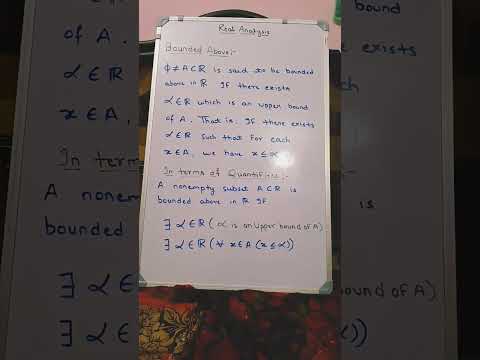 Real Analysis
Bounded Above:-
ϕ ≠ A ⊂ ℝ is said to be bounded
above in ℝ If there exists
α ∈ ℝ which is an upper bound
of A. That is, If there exists
α ∈ ℝ such that for each
x ∈ A, we have x ≤ α
In terms of Quantifiers:-
A nonempty subset A ⊂ ℝ is
bounded above in ℝ If
∃ α ∈ ℝ ( α is an upper bound of A)
∃ α ∈ ℝ ( ∀ x ∈ A (x ≤ α))